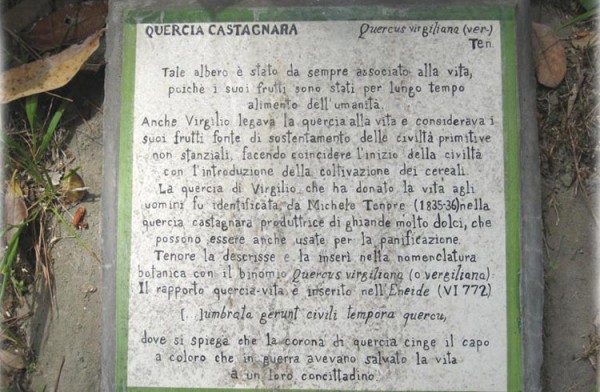 QUERCIA CASTAGNARA Quercus virgiliana (ver.)
Ten.
Tale albero è stato da sempre associato alla vita,
poichè i suoi frutti sono stati per lungo tempo
alimento dell'umanità.
Anche Virgilio legava la quercia alla vita e considerava i
suoi frutti fonte di sostentamento delle civiltà primitive
non stanziali, facendo coincidere l'inizio della civiltà
con l'introduzione della coltivazione dei cereali.
La quercia di Virgilio che ha donato la vita agli
uomini fu identificata da Michele Tenore (1835-36) nella
quercia castagnara produttrice di ghiande molto dolci, che
possono essere anche usate per la panificazione.
Tenore la descrisse e la inserì nella nomenclatura
botanica con il binomio Quercus virgiliana (o vergiliana):
Il rapporto quercia-vita è inserito nell'Eneide (VI 772)
[...]umbrata gerunt civili tempora quercu,
dove si spiega che la corona di quercia cinge il capo
a coloro che in guerra avevano salvato la vita
a un loro concittadino